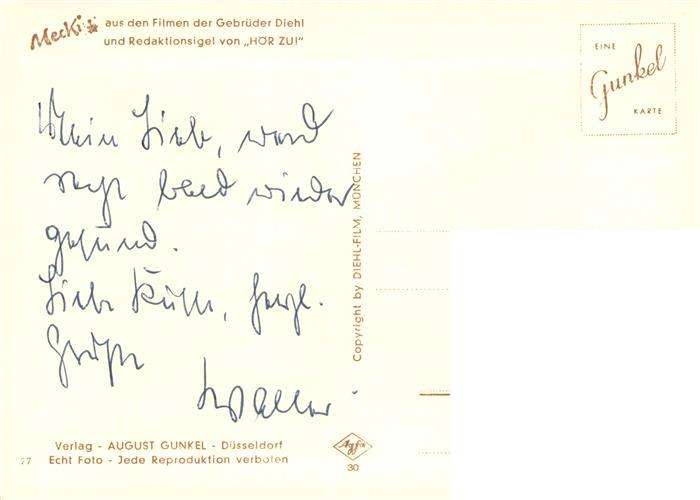 Mecki aus den Filmen der Gebrüder Diehl
und Redaktionsigel von „HÖR ZU!"
EINE
Gunkel
KARTE
Mein Lieb, werd
recht bald wieder
gesund.
Liebe Küsse, herzl.
Grüße
Copyright by DIEHL-FILM, MÜNCHEN
Verlag - AUGUST GUNKEL - Düsseldorf
Echt Foto - Jede Reproduktion verboten
77
Agfa
30